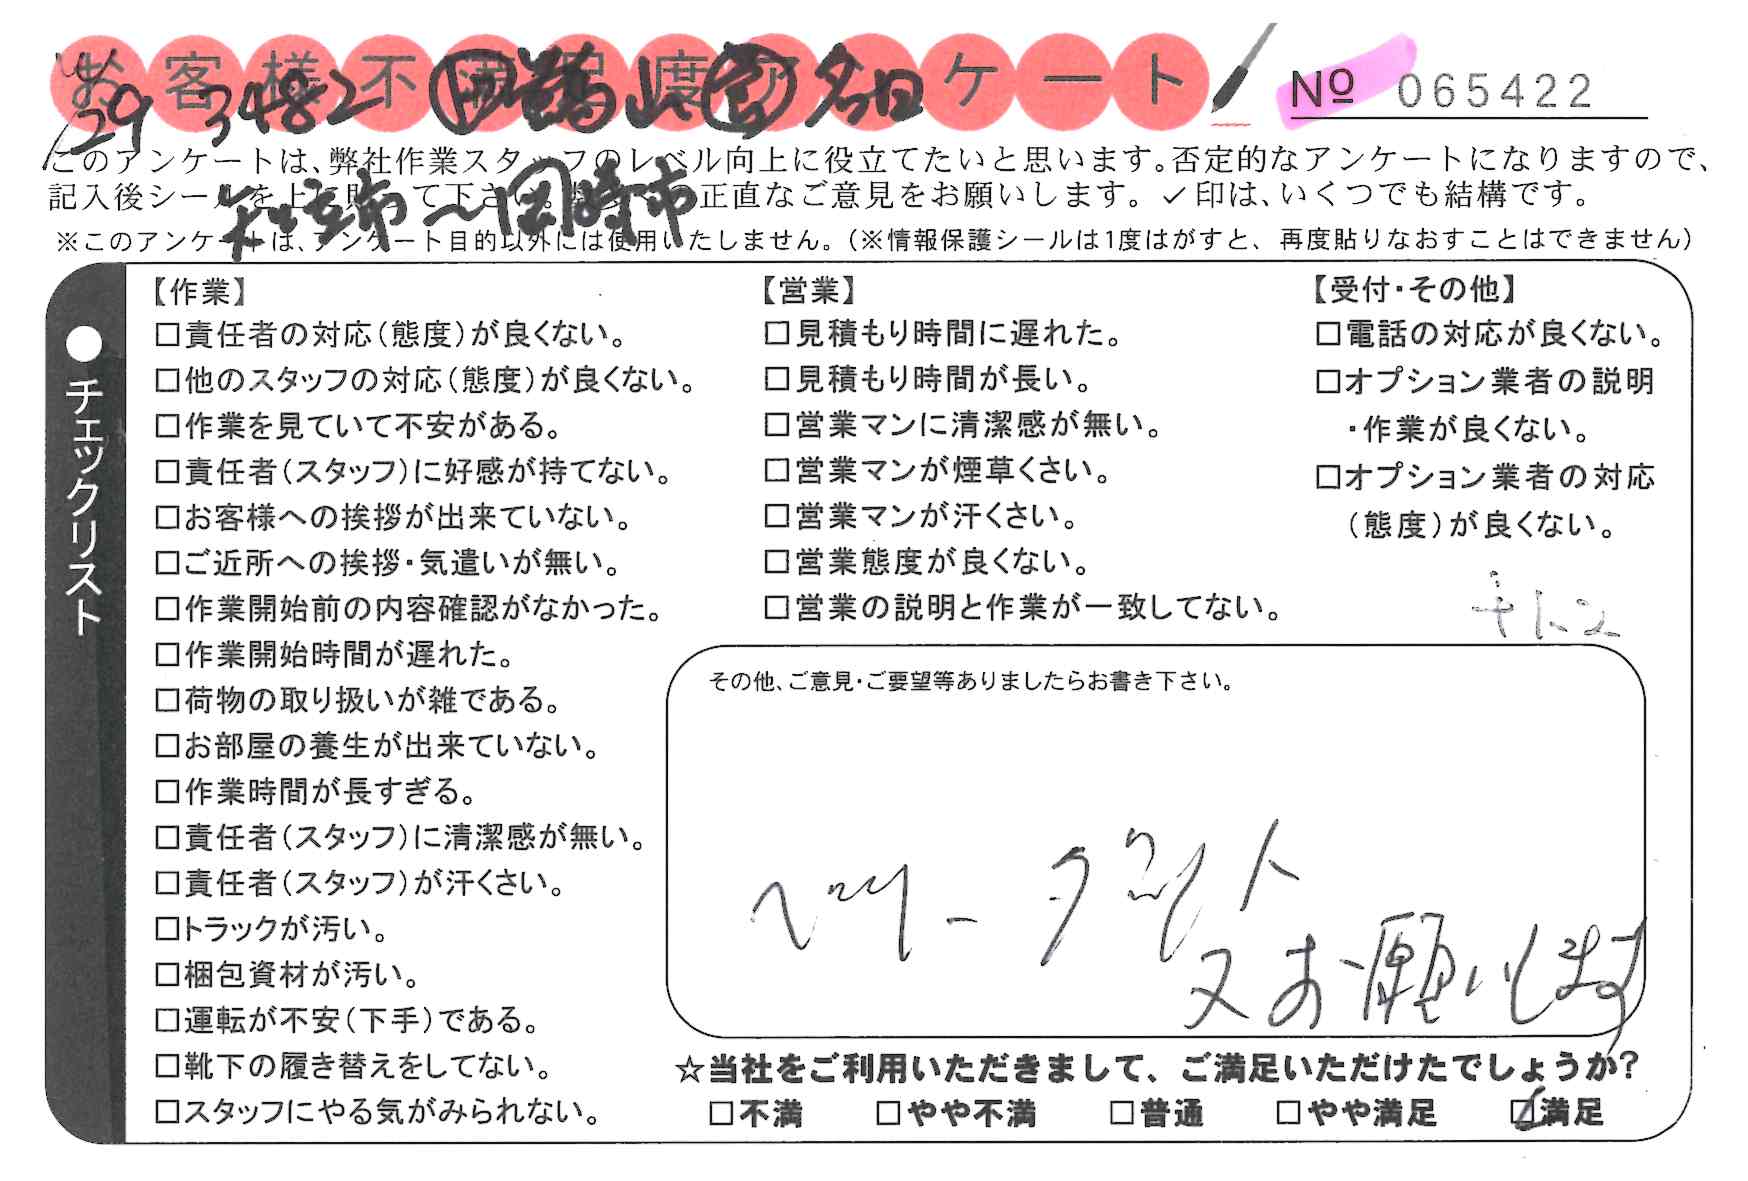 お客様不満足度アンケート
№ 065422
1/29 3482
このアンケートは、弊社作業スタッフのレベル向上に役立てたいと思います。否定的なアンケートになりますので、
記入後シールを上に貼って下さい。 の正直なご意見をお願いします。✓印は、いくつでも結構です。
～岡崎市
※このアンケートは、アンケート目的以外には使用いたしません。(※情報保護シールは1度はがすと、再度貼りなおすことはできません)
●チェックリスト
【作業】
□責任者の対応(態度)が良くない。
□他のスタッフの対応(態度)が良くない。
□作業を見ていて不安がある。
□責任者(スタッフ)に好感が持てない。
□お客様への挨拶が出来ていない。
□ご近所への挨拶・気遣いが無い。
□作業開始前の内容確認がなかった。
□作業開始時間が遅れた。
□荷物の取り扱いが雑である。
□お部屋の養生が出来ていない。
□作業時間が長すぎる。
□責任者(スタッフ)に清潔感が無い。
□責任者(スタッフ)が汗くさい。
□トラックが汚い。
□梱包資材が汚い。
□運転が不安(下手)である。
□靴下の履き替えをしてない。
□スタッフにやる気がみられない。
【営業】
□見積もり時間に遅れた。
□見積もり時間が長い。
□営業マンに清潔感が無い。
□営業マンが煙草くさい。
□営業マンが汗くさい。
□営業態度が良くない。
□営業の説明と作業が一致してない。
【受付・その他】
□電話の対応が良くない。
□オプション業者の説明
・作業が良くない。
□オプション業者の対応
(態度)が良くない。
その他、ご意見・ご要望等ありましたらお書き下さい。
又お願いします
☆当社をご利用いただきまして、ご満足いただけたでしょうか?
□不満 □やや不満 □普通 □やや満足 ☑満足